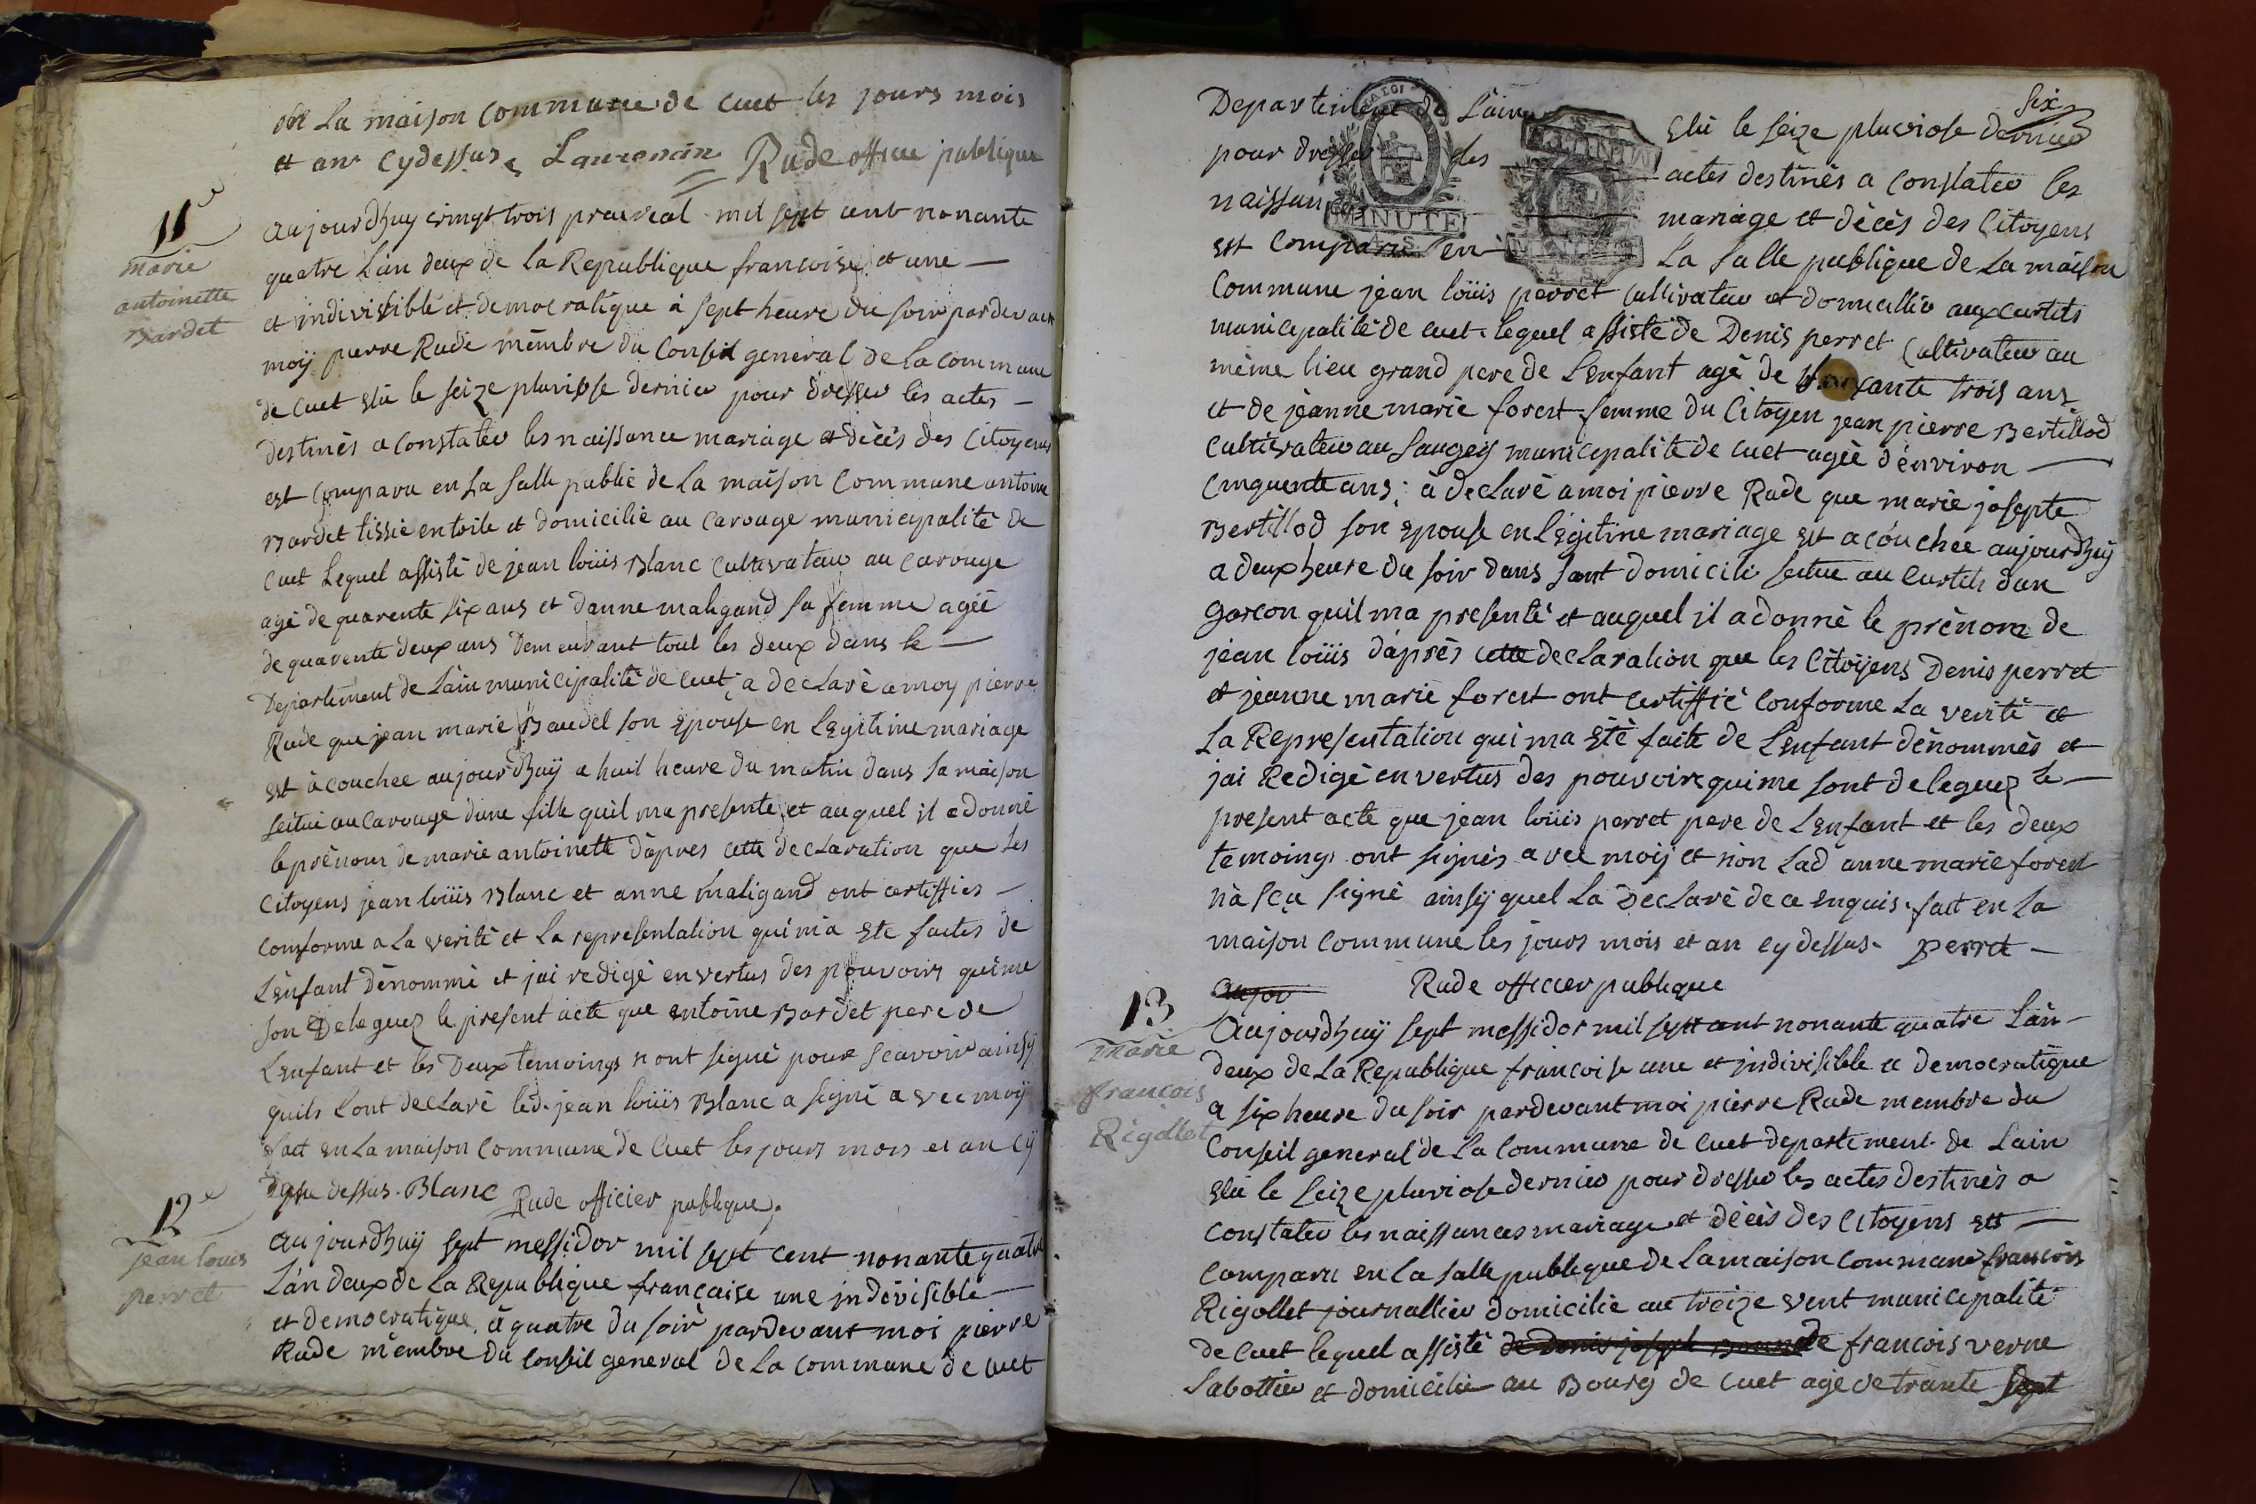 La maison commune de cuet les jours mois
et an cydessus Rude officie publique
11e
marie
antoinette
Bardet
aujourdhuy vingt trois prairéal mil sept cent nonante
quatre L'an deux de la Republique francoise et une
et indivisible et democratique à sept heure du soir pardevant
moÿ pierre Rude mêmbre du Conseil general de la commune
de Cuet élû le seize pluviose dernier pour dresser les actes
destinés a constater les naissance mariage et décés des Citoyens
est comparu en La salle public de La maison Commune antoine
Bardet tissié en toile et domicilié au Carouge municipalité de
Cuet Lequel assisté de jean loüis Blanc Cultivateur au Carouge
agé de quarente six ans et danne maligand sa femme agéé
de quarente deux ans Demeurant tout les deux dans le
Departement de Lain municipalité de Cuet, a declaré a moy pierre
Rude que jean marie Baudel son Epouse en Legitime mariage
Est àcouchee aujourdhuÿ a huit heure du matin dans sa maison
scitué au Carouge dune fille quil ma presente, et auquel il a donné
le prénom de marie antoinette dápres cette declaration que Les
Citoyens jean loüis Blanc et anne maligand ont certiffiés
conforme a La verité et La representation qui m'a Ete faites de
L'enfant dénommé et jai redigé en vertus des pouvoirs quime
son Deleguez le present acte que entoine Bardet pere de
Lenfant et les Deux temoings n ont signé pour scavoir ainsÿ
quils Lont declaré led. jean loüis Blanc a signé avec moÿ
fact en La maison commune de Cuet les jours mois et an cÿ
dessus. Blanc Rude officier publique.
12e
jean louis
perret
aujourdhuÿ sept messidor mil sept cent nonante quatre
L'an deux de La Republique française une indévisible
et democratique, à quatre du soir pardevant moi pierre
Rude mêmbre du Conseil general de La commune de Cuet
six
Departement de Lain Elû le seize pluviose dernier
pour dresser des actes destinés a Constater les
naissan mariage et décès des Citoyens
est comparu en La salle publique de La maison
Commune jean loüis perret Cultivateur et domicillié aux curtils
municipalité de Cuet lequel assisté de Denis perret Cultivateur au
même lieu grand pere de L'enfant agé de trois ans
et de jeanne marie forest femme du Citoyen jean pierre Bertillod
Cultivateur au Saugey municipalité de Cuet agéé d'énviron
Cinquente ans; a declaré a moi pierre Rude que marie josepte
Bertillod son Epouse en Légitime mariage est acouchee aujourdhuÿ
a deux heure du soir dans sont domicile scitue au Curtils dun
garcon quil ma presenté et auquel il a donné le prénom de
jean loüis dáprès cette declaration que les Citoÿens Denis perret
et jeanne marie forest ont certiffié conforme La verité et
La Representation qui ma Eté faite de Lenfant dénommés et
jai Redigé en vertus des pouvoirs quime sont deleguez le
present acte que jean loüis perret pere de Lenfant et les deux
temoings ont signés avec moÿ et non Lad anne marie forest
n'a scu signé ainsÿ quel La Declaré de ce enquis. fact en La
maison Commune les jours mois et an cy dessus. perret
aujor Rude officier publique
13
marie
francois
Rigollet
Aujourdhuÿ sept messidor mil sept cent nonante quatre L'an
deux de La Republique francoise une et jndivisible et democratique
a six heure du soir pardevant moi pierre Rude membre du
Conseil general de La Commune de Cuet departement de Lain
Elû le seize pluviose dernier pour dresser les actes destinés a
constater les naissances mariage et décés des Citoyens est
comparu en La salle publique de La maison commune francois
Rigollet journallier domicilié au treize vent municipalité
de Cuet lequel assisté de francois verne
Sabottier et domicilié au Bourg de Cuet agé de trante sept